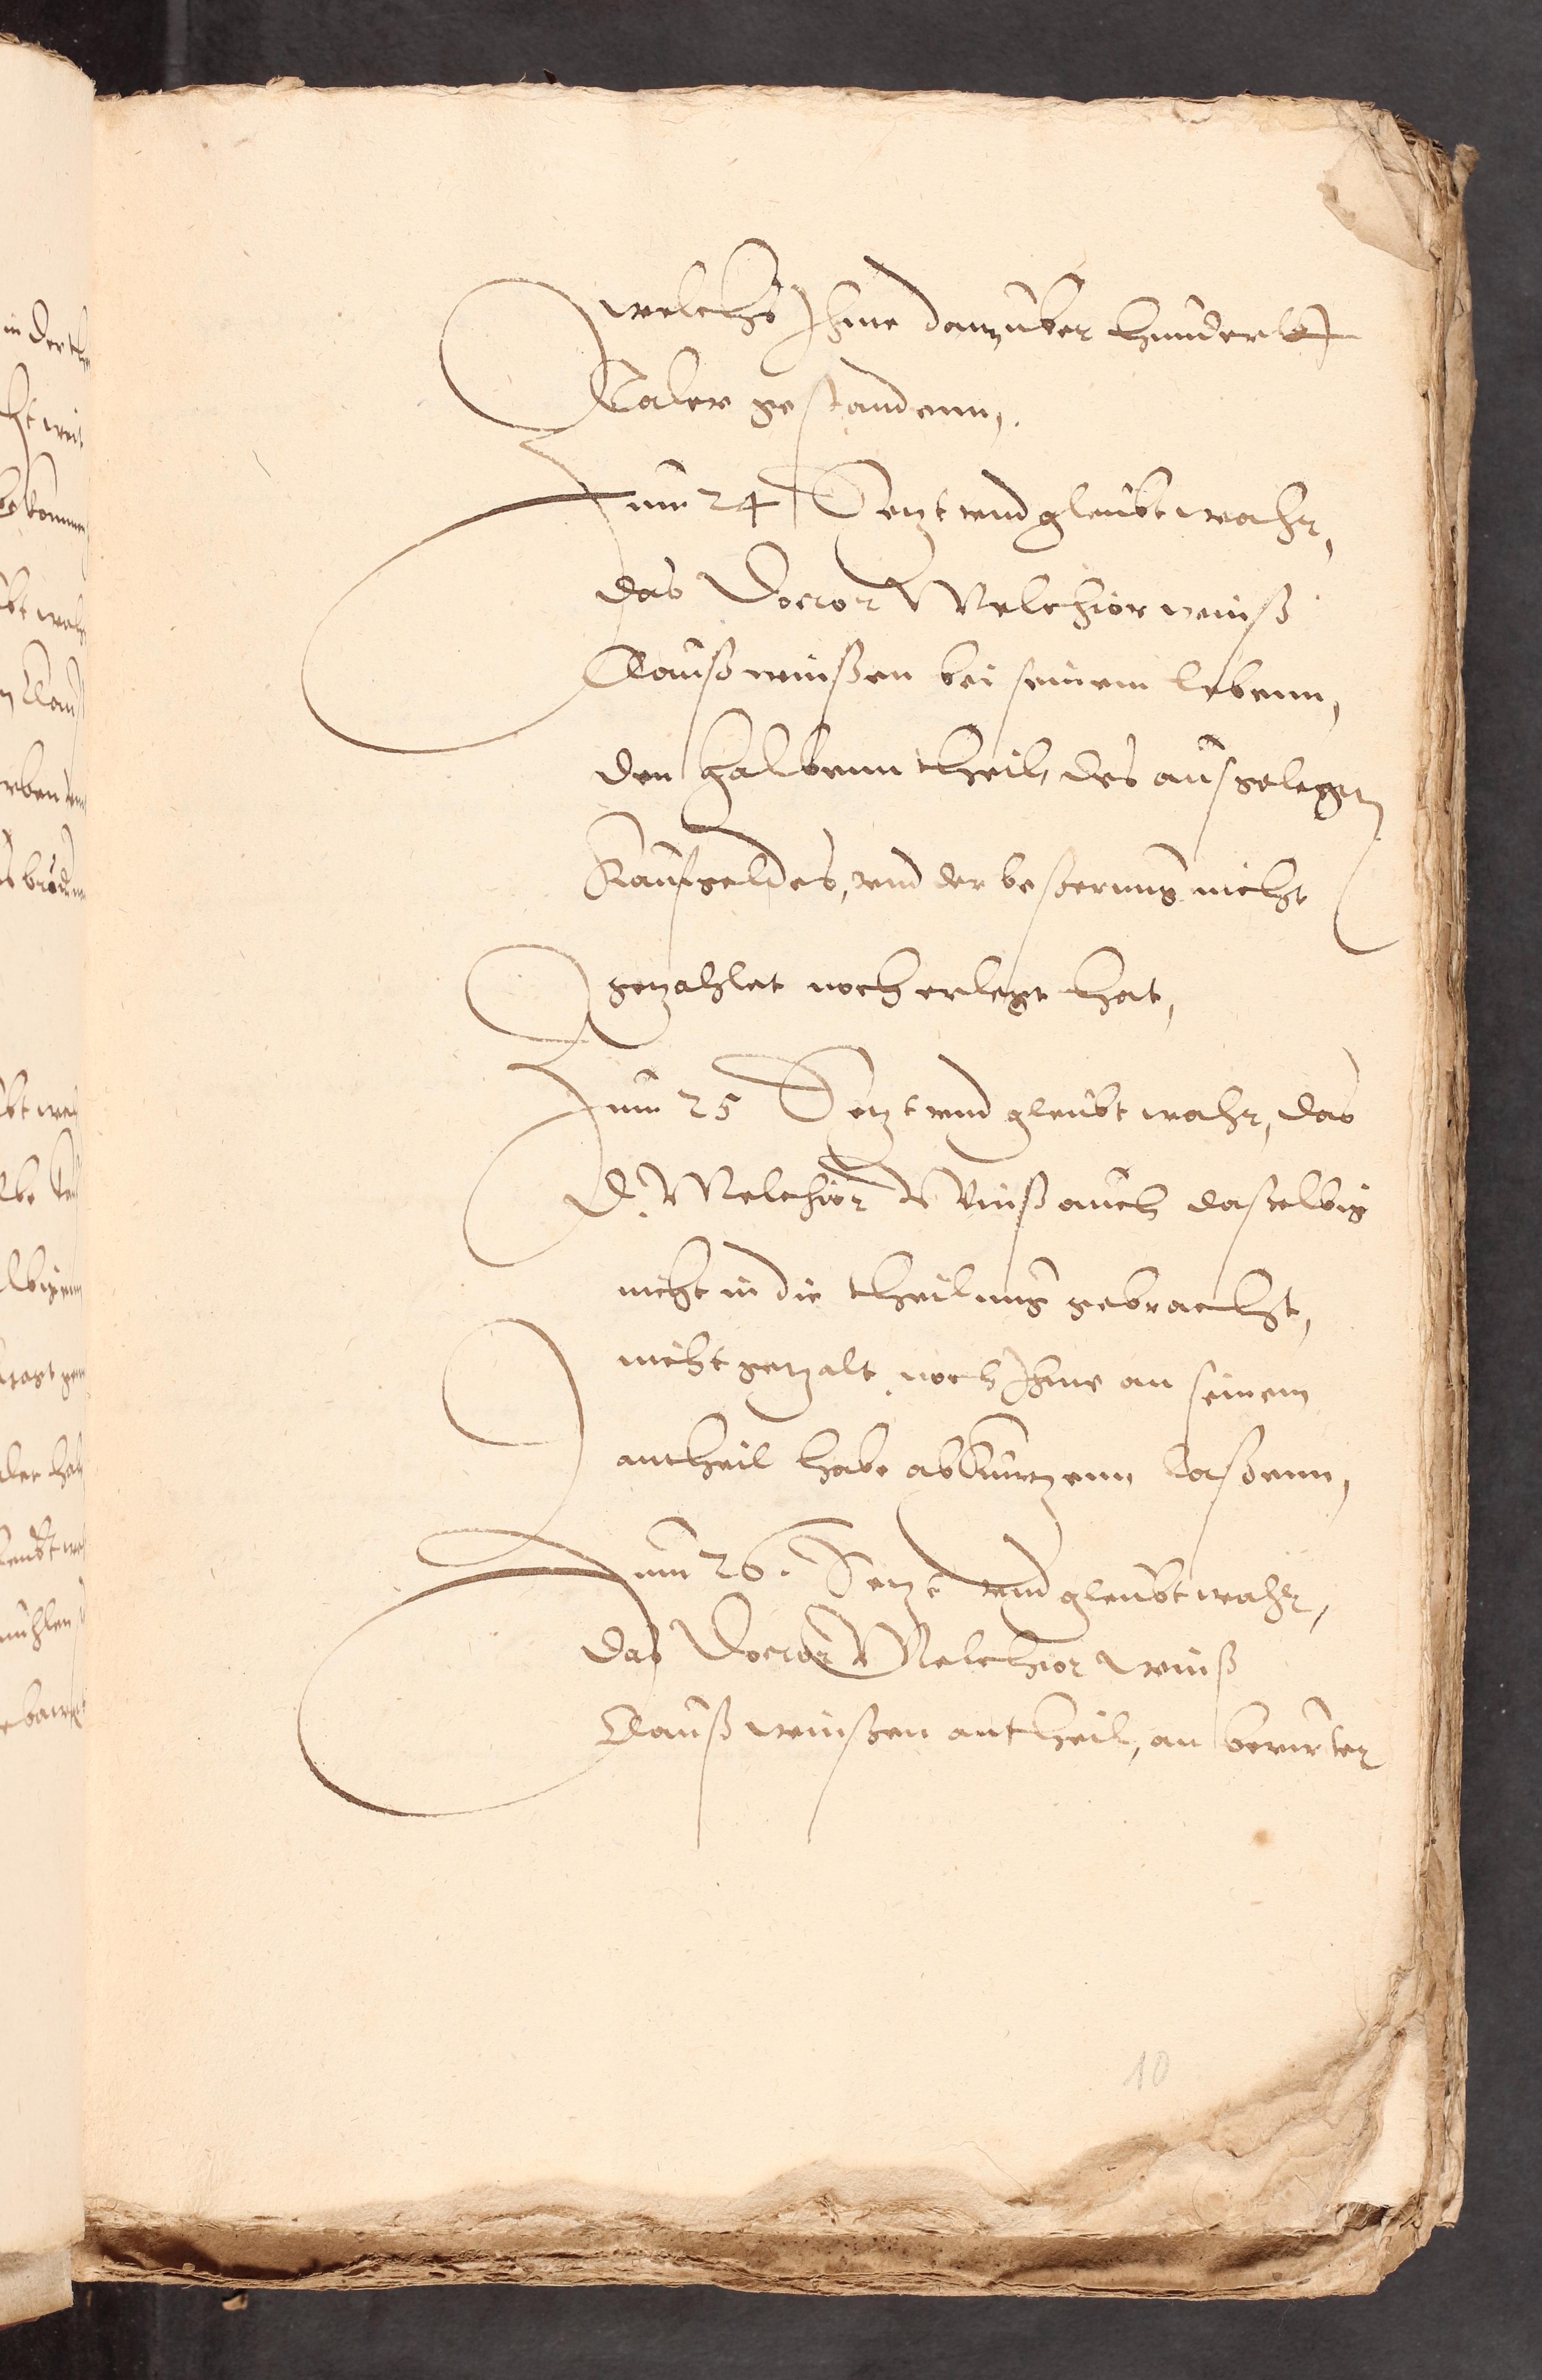 welchs Ihme dan uber hundert
Taler gestandenn,.
Zum 24 Setzt vnd gleubt wahr,
das Doctor Melchior winß
Clauß winßen bei seinem lebenn,
den halbenn theil, des ausgelegten
Kaufgeldes, vnd der beßerung nicht
getzahlet noch erlegt hat,
Zum 25 Setzt vnd gleubt wahr, das
D. Melchior Winß auch daselbig
nicht in die theilung gebracht,
nicht getzalt noch Ihme an seinem
antheil habe abkurtzenn laßenn,
Zum 26. Setzt vnd gleubt wahr,
das Doctor Melchior winß
Clauß winßen antheil, an berurter
10